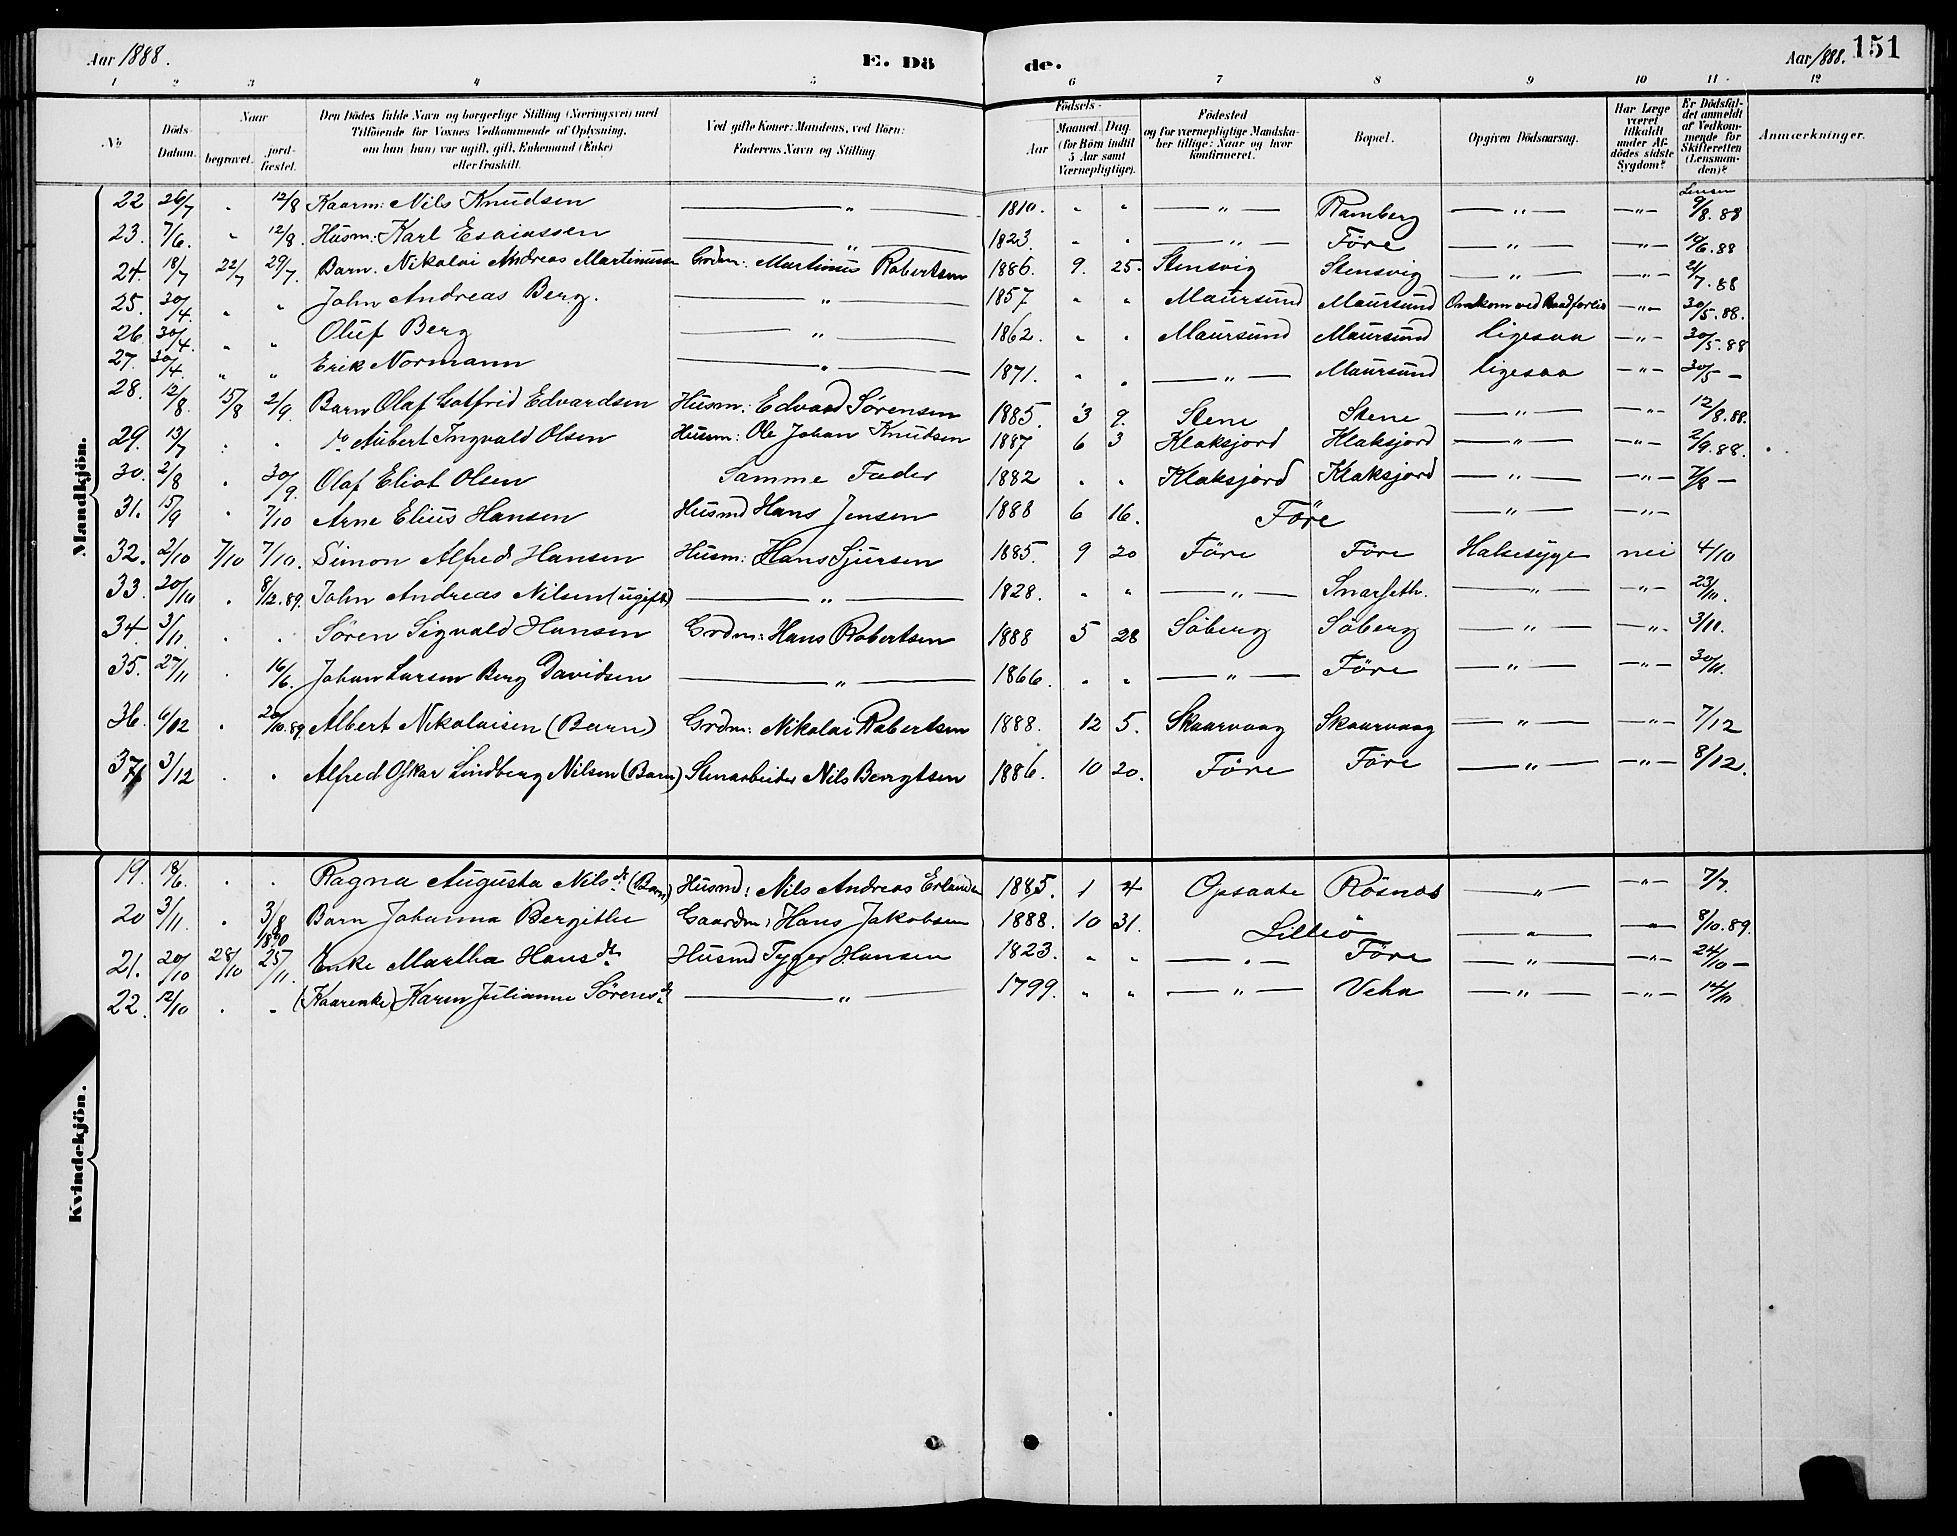 Aar 1888. E. Dö de. Aar 1888. 151
1 2 3 4 5 6 7 8 9 10 11 12
No Döds-Datum. Naar begravet. jord-fæstet. Den Dödes fulde Navn og borgerlige Stilling (Næringsvei) med Tilföiende for Voxnes Vedkommende af Oplysning, om han (hun) var ugift, gift, Enkemand (Enke) eller fraskilt. Ved gifte Koner: Mandens, ved Börn: Faderens Navn og Stilling Födsels- Aar Maaned Dag (for Börn indtil 5 Aar samt Værnepligtige). Födested og for værnepligtige Mandskaber tillige: Naar og hvor konfirmeret. Bopæl. Opgiven Dödsaarsag. Har Læge været tilkaldt under Afdödes sidste Sygdom? Er Dödsfaldet anmeldt af Vedkommende for Skifteretten (Lensmanden)? Anmærkninger.
Mandkjön.
22 26/7 " 12/8 Kaarm: Nils Knudsen — " — 1810. " " — " — Ramberg — " — — " — Lensm 9/8. 88
23. 7/6. " 12/8. Husm: Karl Esaiassen — " — 1823. " " — " — Före — " — — " — 10/6. 88
24. 18/7 22/7 29/7. Barn. Nikolai Andreas Martinussen Grdm: Martinus Robertsen 1886. 9. 25. Stensvig Stensvig — " — — " — 21/7. 88
25. 30/4. " " John Andreas Berg. — " — 1857 " " Maursund Maursund Omkom ved Baadforlis — " — 30/5. 88.
26. 30/4. " " Oluf Berg — " — 1862. " " Maursund Maursund ligesaa — " — 30/5. 88
27. 30/4. " " Erik Normann — " — 1871. " " — " — Maursund ligesaa — " — 30/5 —
28. 12/8. 15/8 2/9. Barn Olaf Gotfrid Edvardsen Husm: Edvard Sörensen 1885. 3 9. Stene Stene — " — — " — 12/8. 88.
29. 13/7 . . do Aubert Ingvald Olsen Husm: Ole Johan Knudsen 1887 6 3 Klaksjord Klaksjord — " — — " — 2/9. 88.
30. 2/8 . 30/9. Olaf Eliot Olsen Samme Fader 1882 " " Klaksjord Klaksjord — " — — " — 7/8 —
31. 15/9 " 7/10 Arne Elius Hansen Husmd Hans Jensen 1888 6 16. Före — " — — " —
32. 2/10 7/10 7/10. Simon Alfred Hansen Husm: Hans Sjursen 1885. 9 20 Före Före Halssyge nei 4/10
33. 20/10 . 8/12. 89. John Andreas Nilsen (ugift) — " — 1828. " " — " — Snarseth. — " — — " — 23/11.
34 3/11. . . Sören Sigvald Hansen Grdm: Hans Robertsen 1888 5 28 Söberg Söberg — " — — " — 3/11.
35. 27/11 . 16/6. Johan Larsen Berg Davidsen — " — 1866. " " — " — Före — " — — " — 30/11.
36. 6/12 . 20/10. 89. Albert Nikolaisen (Barn) Grdm: Nikolai Robertsen 1888. 12 5. Skaarvaag Skaarvaag — " — — " — 7/12
37 3/12 . . Alfred Oskar Lindberg Nilsen (Barn) Stenarbeider Nils Bengtsen 1886. 10 20. Före Före — " — — " — 8/12.
Kvindekjön.
19. 18/6. . . Ragna Augusta Nilsdr. (Barn) Husmd: Nils Andreas Erlandsen 1885. 1 4 Opsaate Rösnes — " — — " — 7/7.
20 3/11. . 3/8 1890 Barn Johanna Bergithe Gaardm: Hans Jakobsen 1888. 10 31. Lilleö — " — — " — 8/10. 89.
21. 20/10 28/10 25/11. Enke Martha Hansdtr Husmd Tyger Hansen 1823. " " — " — Före — " — — " — 24/10 —
22. 12/10 . . (Kaarenke) Karen Julianne Sörensdr. — " — 1799. " " — " — Vehn — " — — " — 14/11